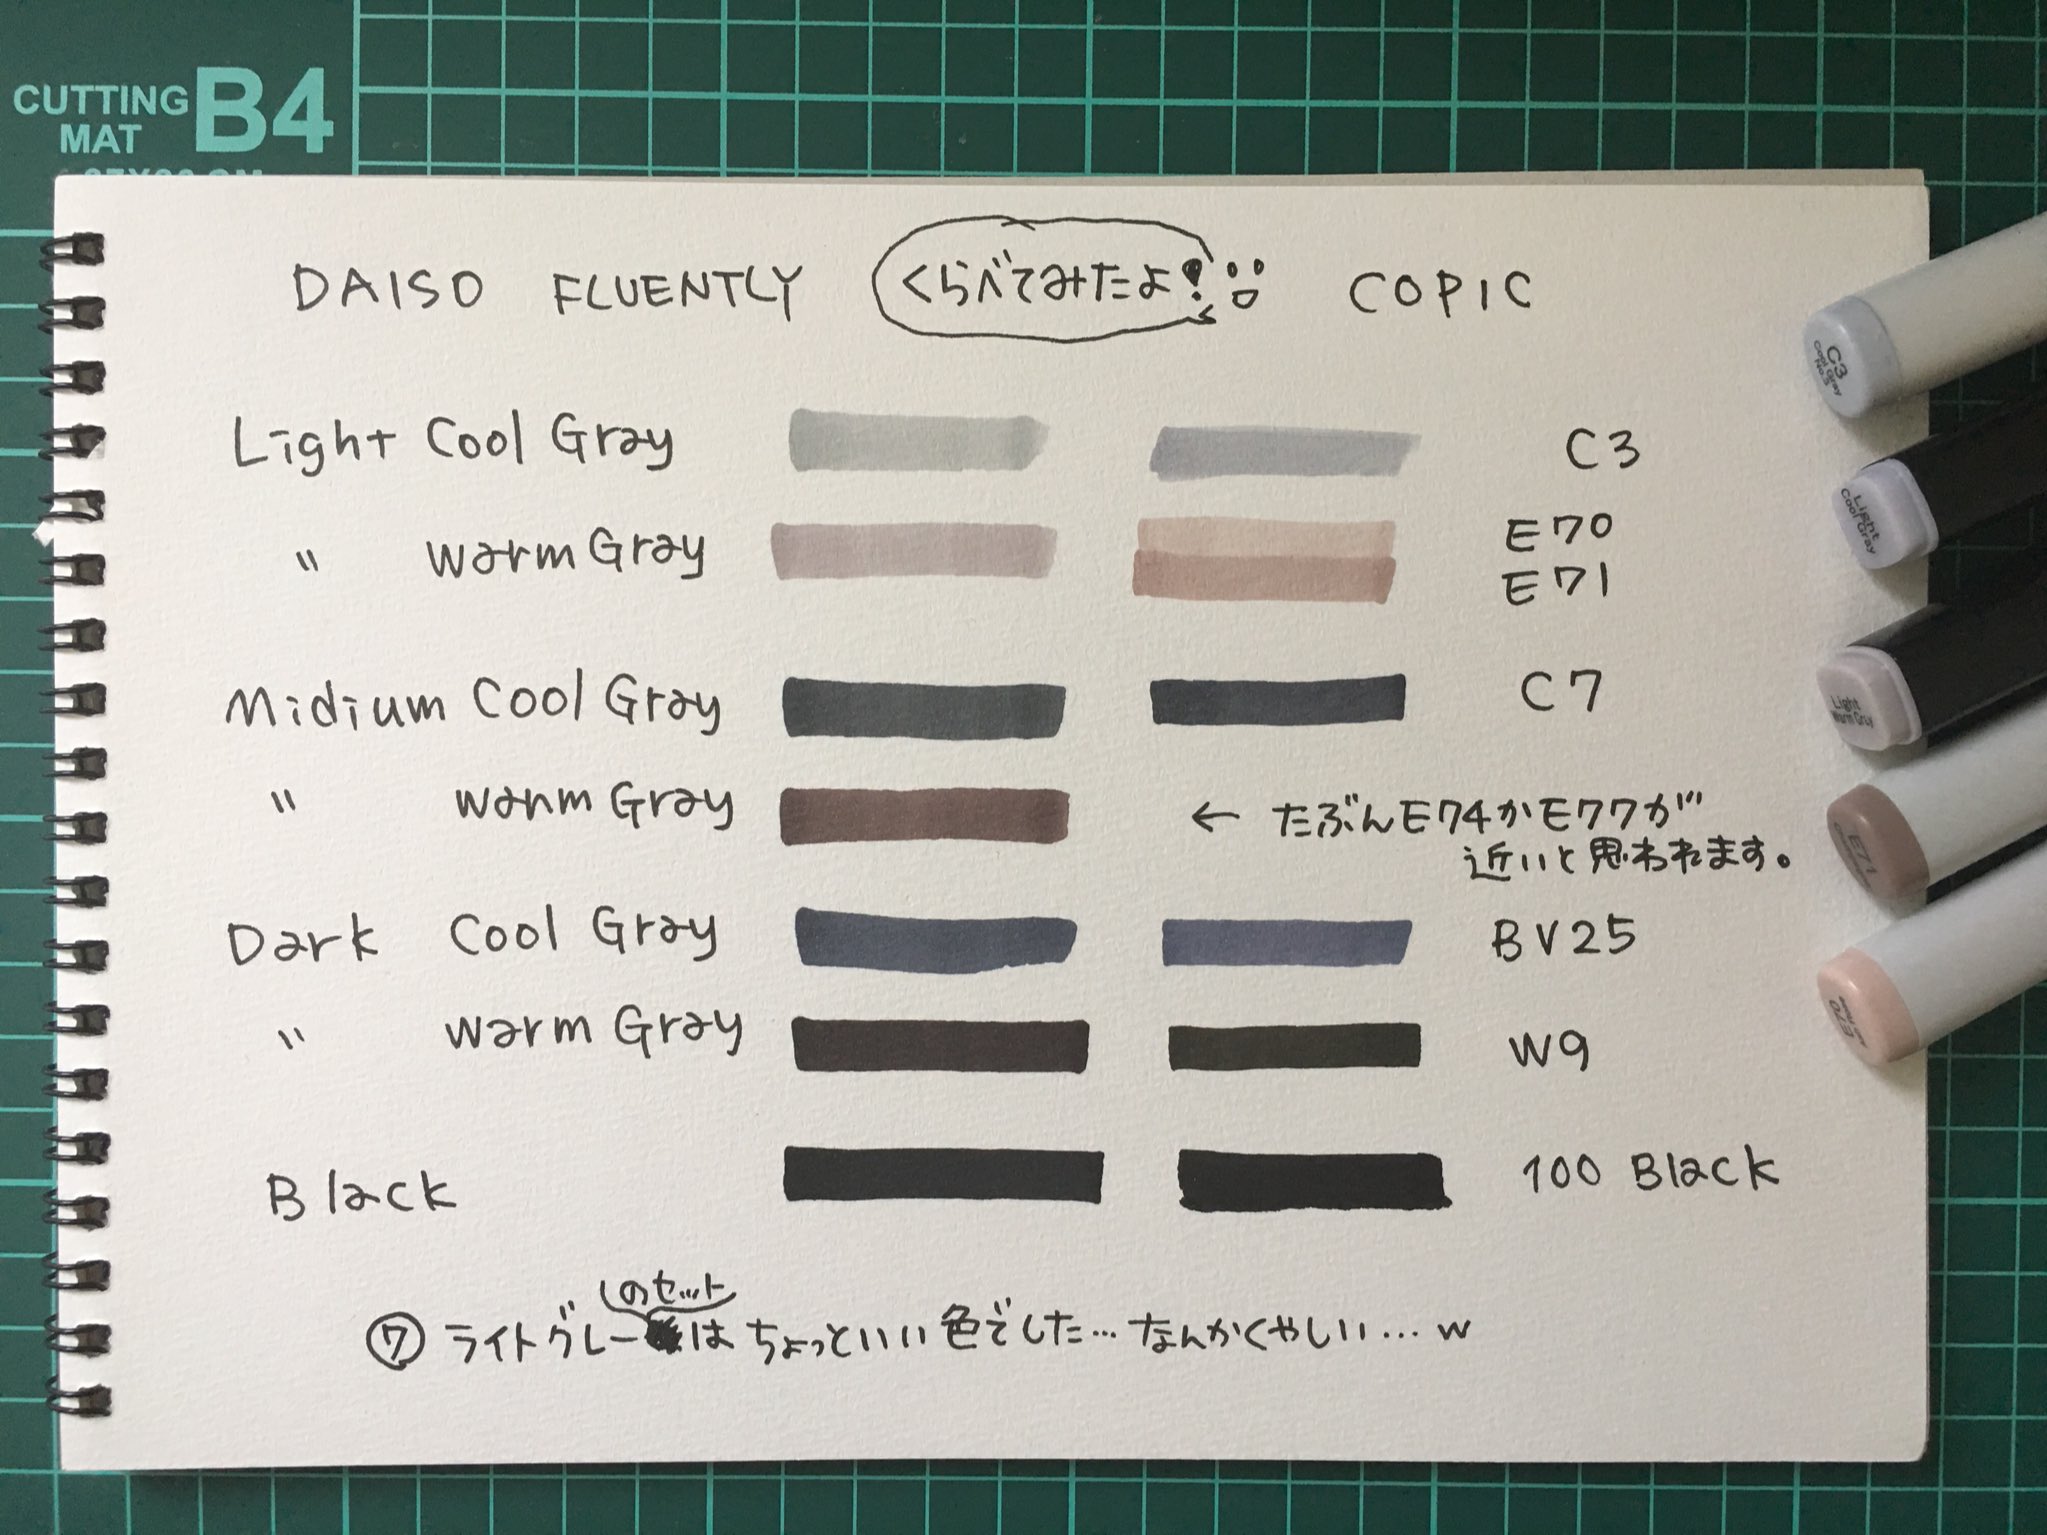 CUTTING
MAT
B4
DAISO FLUENTLY くらべてみたよ! COPIC
Light Cool Gray C3
〃 Warm Gray E70
E71
Midium Cool Gray C7
〃 Warm Gray ← たぶんE74かE77が
近いと思われます。
Dark Cool Gray BV25
〃 Warm Gray W9
Black 100 Black
のセット
⑦ ライトグレーはちょっといい色でした…なんかくやしい…w
C3
Cool Gray
No.3
Light
Cool Gray
Light
Warm Gray
E71
E70